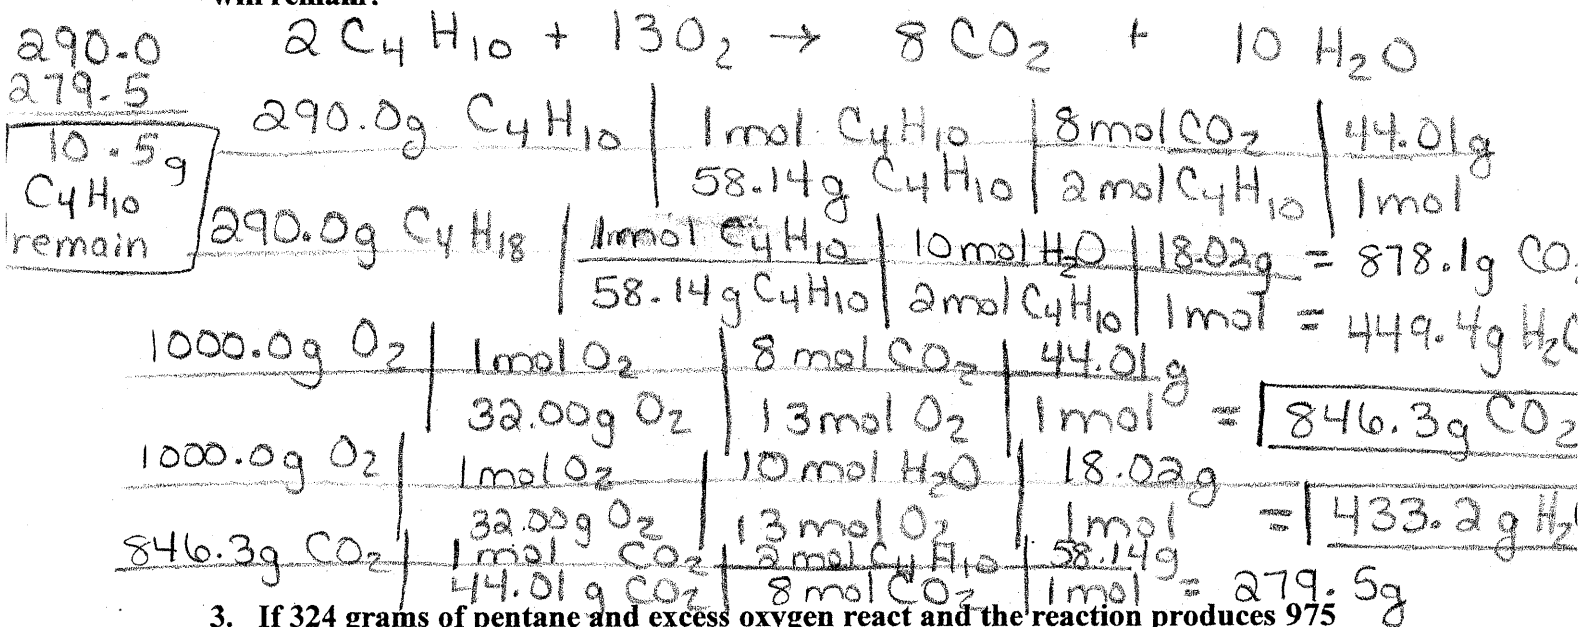 will remain?
2 C4 H10 + 13O2 → 8 CO2 + 10 H2O
290.0
279.5
10.5g
C4H10
remain
290.0g C4H10 | 1mol C4H10 | 8mol CO2 | 44.01g
58.14g C4H10 | 2mol C4H10 | 1mol
290.0g C4H18 | 1mol C4H10 | 10mol H2O | 18.02g = 878.1g CO
58.14g C4H10 | 2mol C4H10 | 1mol = 449.4g H2O
1000.0g O2 | 1mol O2 | 8 mol CO2 | 44.01g
32.00g O2 | 13mol O2 | 1mol = 846.3g CO2
1000.0g O2 | 1mol O2 | 10 mol H2O | 18.02g
32.00g O2 | 13mol O2 | 1mol = 433.2g H2
846.3g CO2 | 1mol CO2 | 2mol C4H10 | 58.14g
44.01g CO2 | 8mol CO2 | 1mol = 279.5g
3. If 324 grams of pentane and excess oxygen react and the reaction produces 975